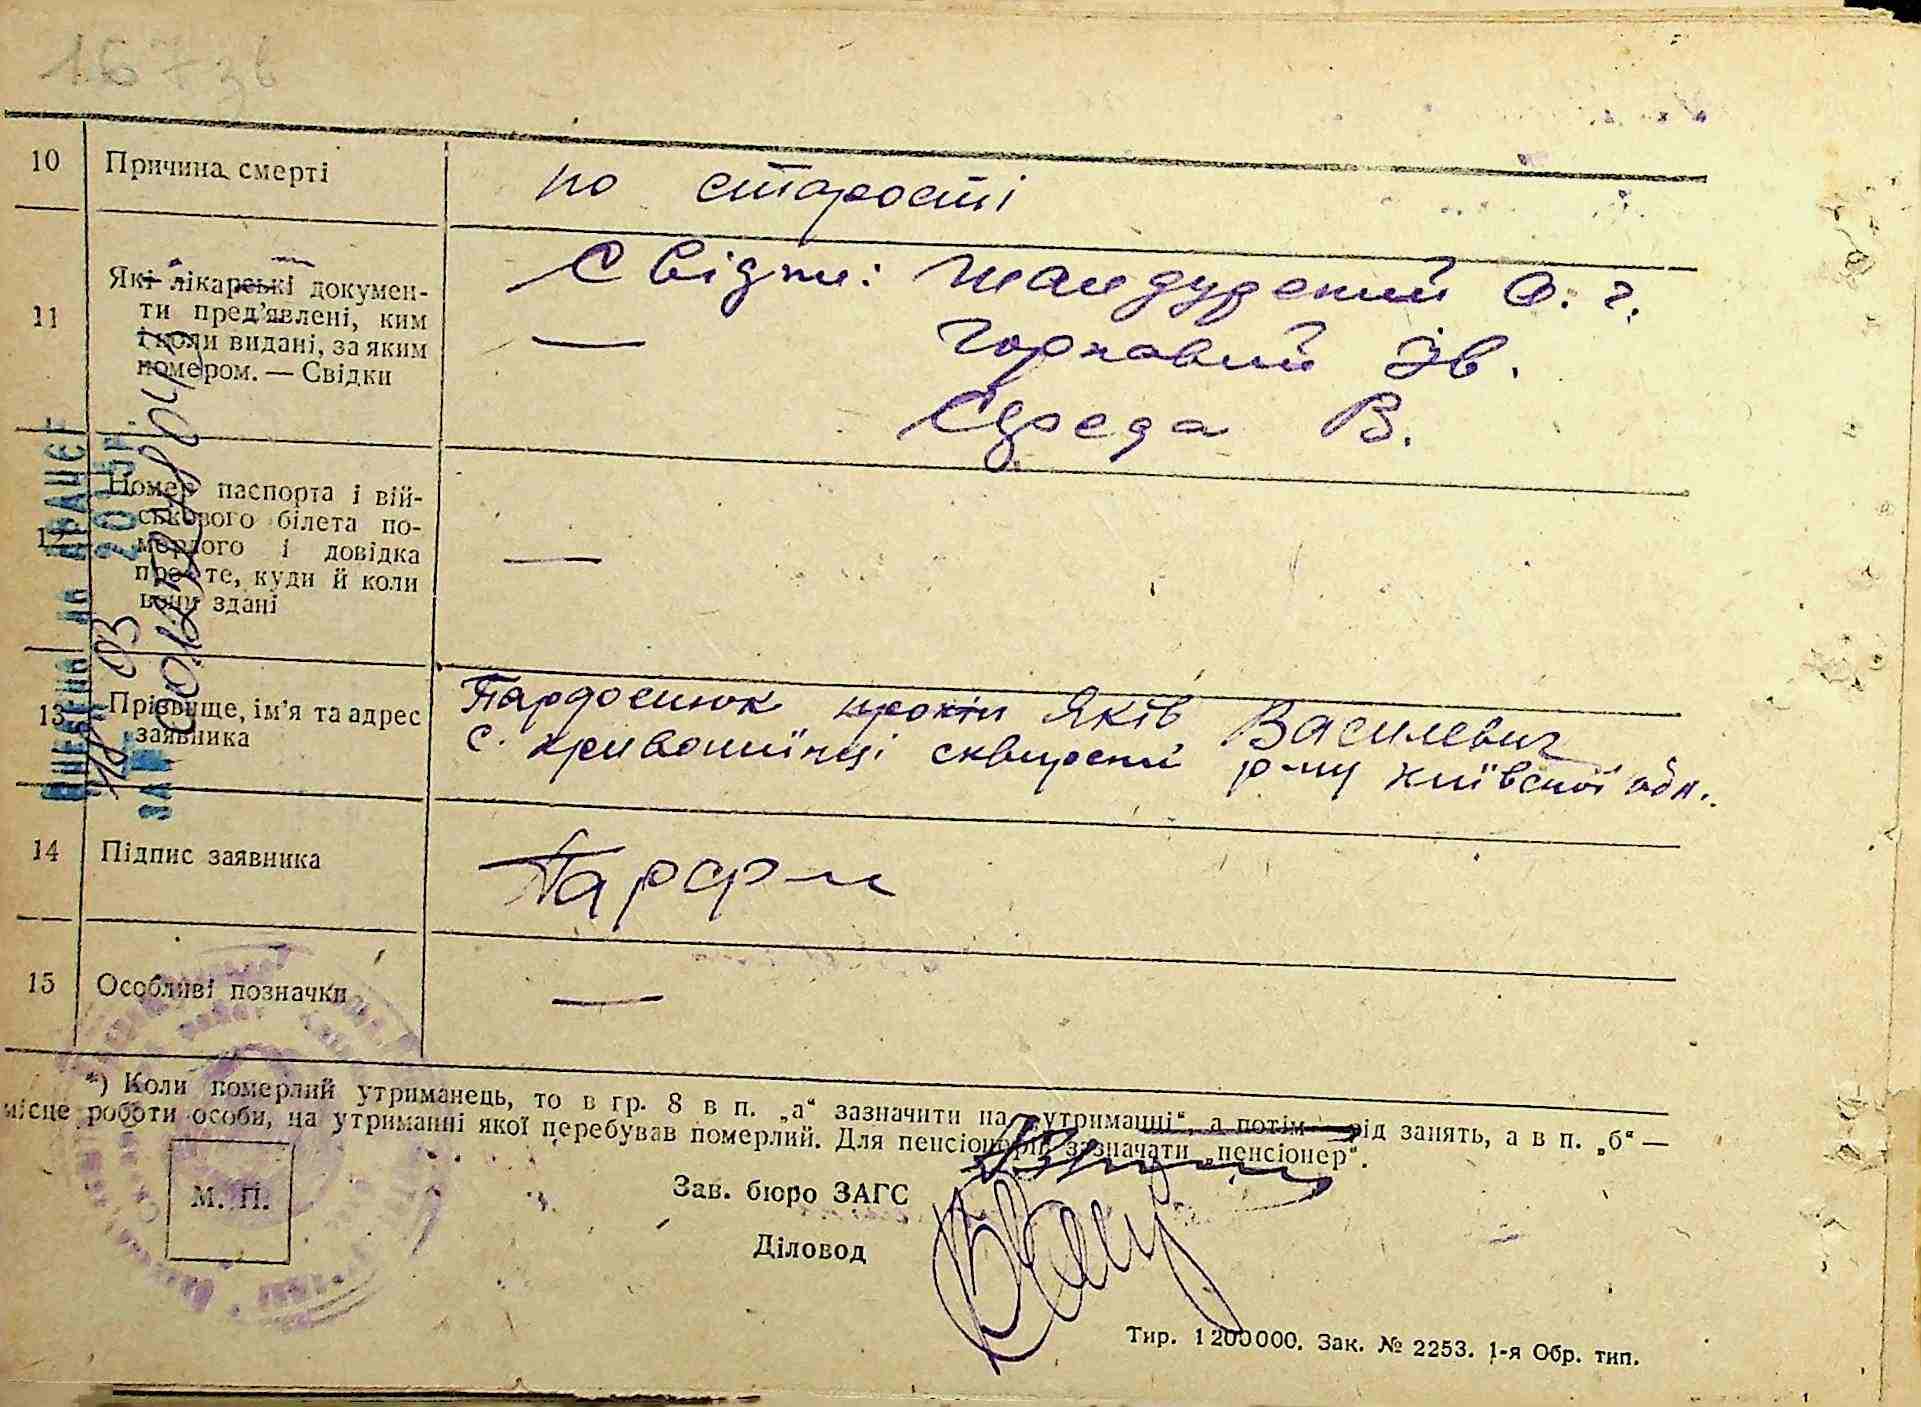 1673в
10 Причина смерті
по старості
11 Які лікарські докумен-
ти пред'явлені, ким
і коли видані, за яким
номером. — Свідки
Свідки: О. г.
— Горкавий Ів.
Середа В.
12 Номер паспорта і вій-
ськового білета по-
мерлого і довідка
про те, куди й коли
вони здані
—
13 Прізвище, ім'я та адрес
заявника
Яків Василевич
с. кривошиїнці сквирский р-ну київської обл.
14 Підпис заявника
15 Особливі позначки
—
*) Коли померлий утриманець, то в гр. 8 в п. „а“ зазначити на „утриманні“, а потім рід занять, а в п. „б“ —
місце роботи особи, на утриманні якої перебував померлий. Для пенсіонерів зазначати „пенсіонер“.
М. П.
Зав. бюро ЗАГС
Діловод
Тир. 1200000. Зак. № 2253. 1-я Обр. тип.